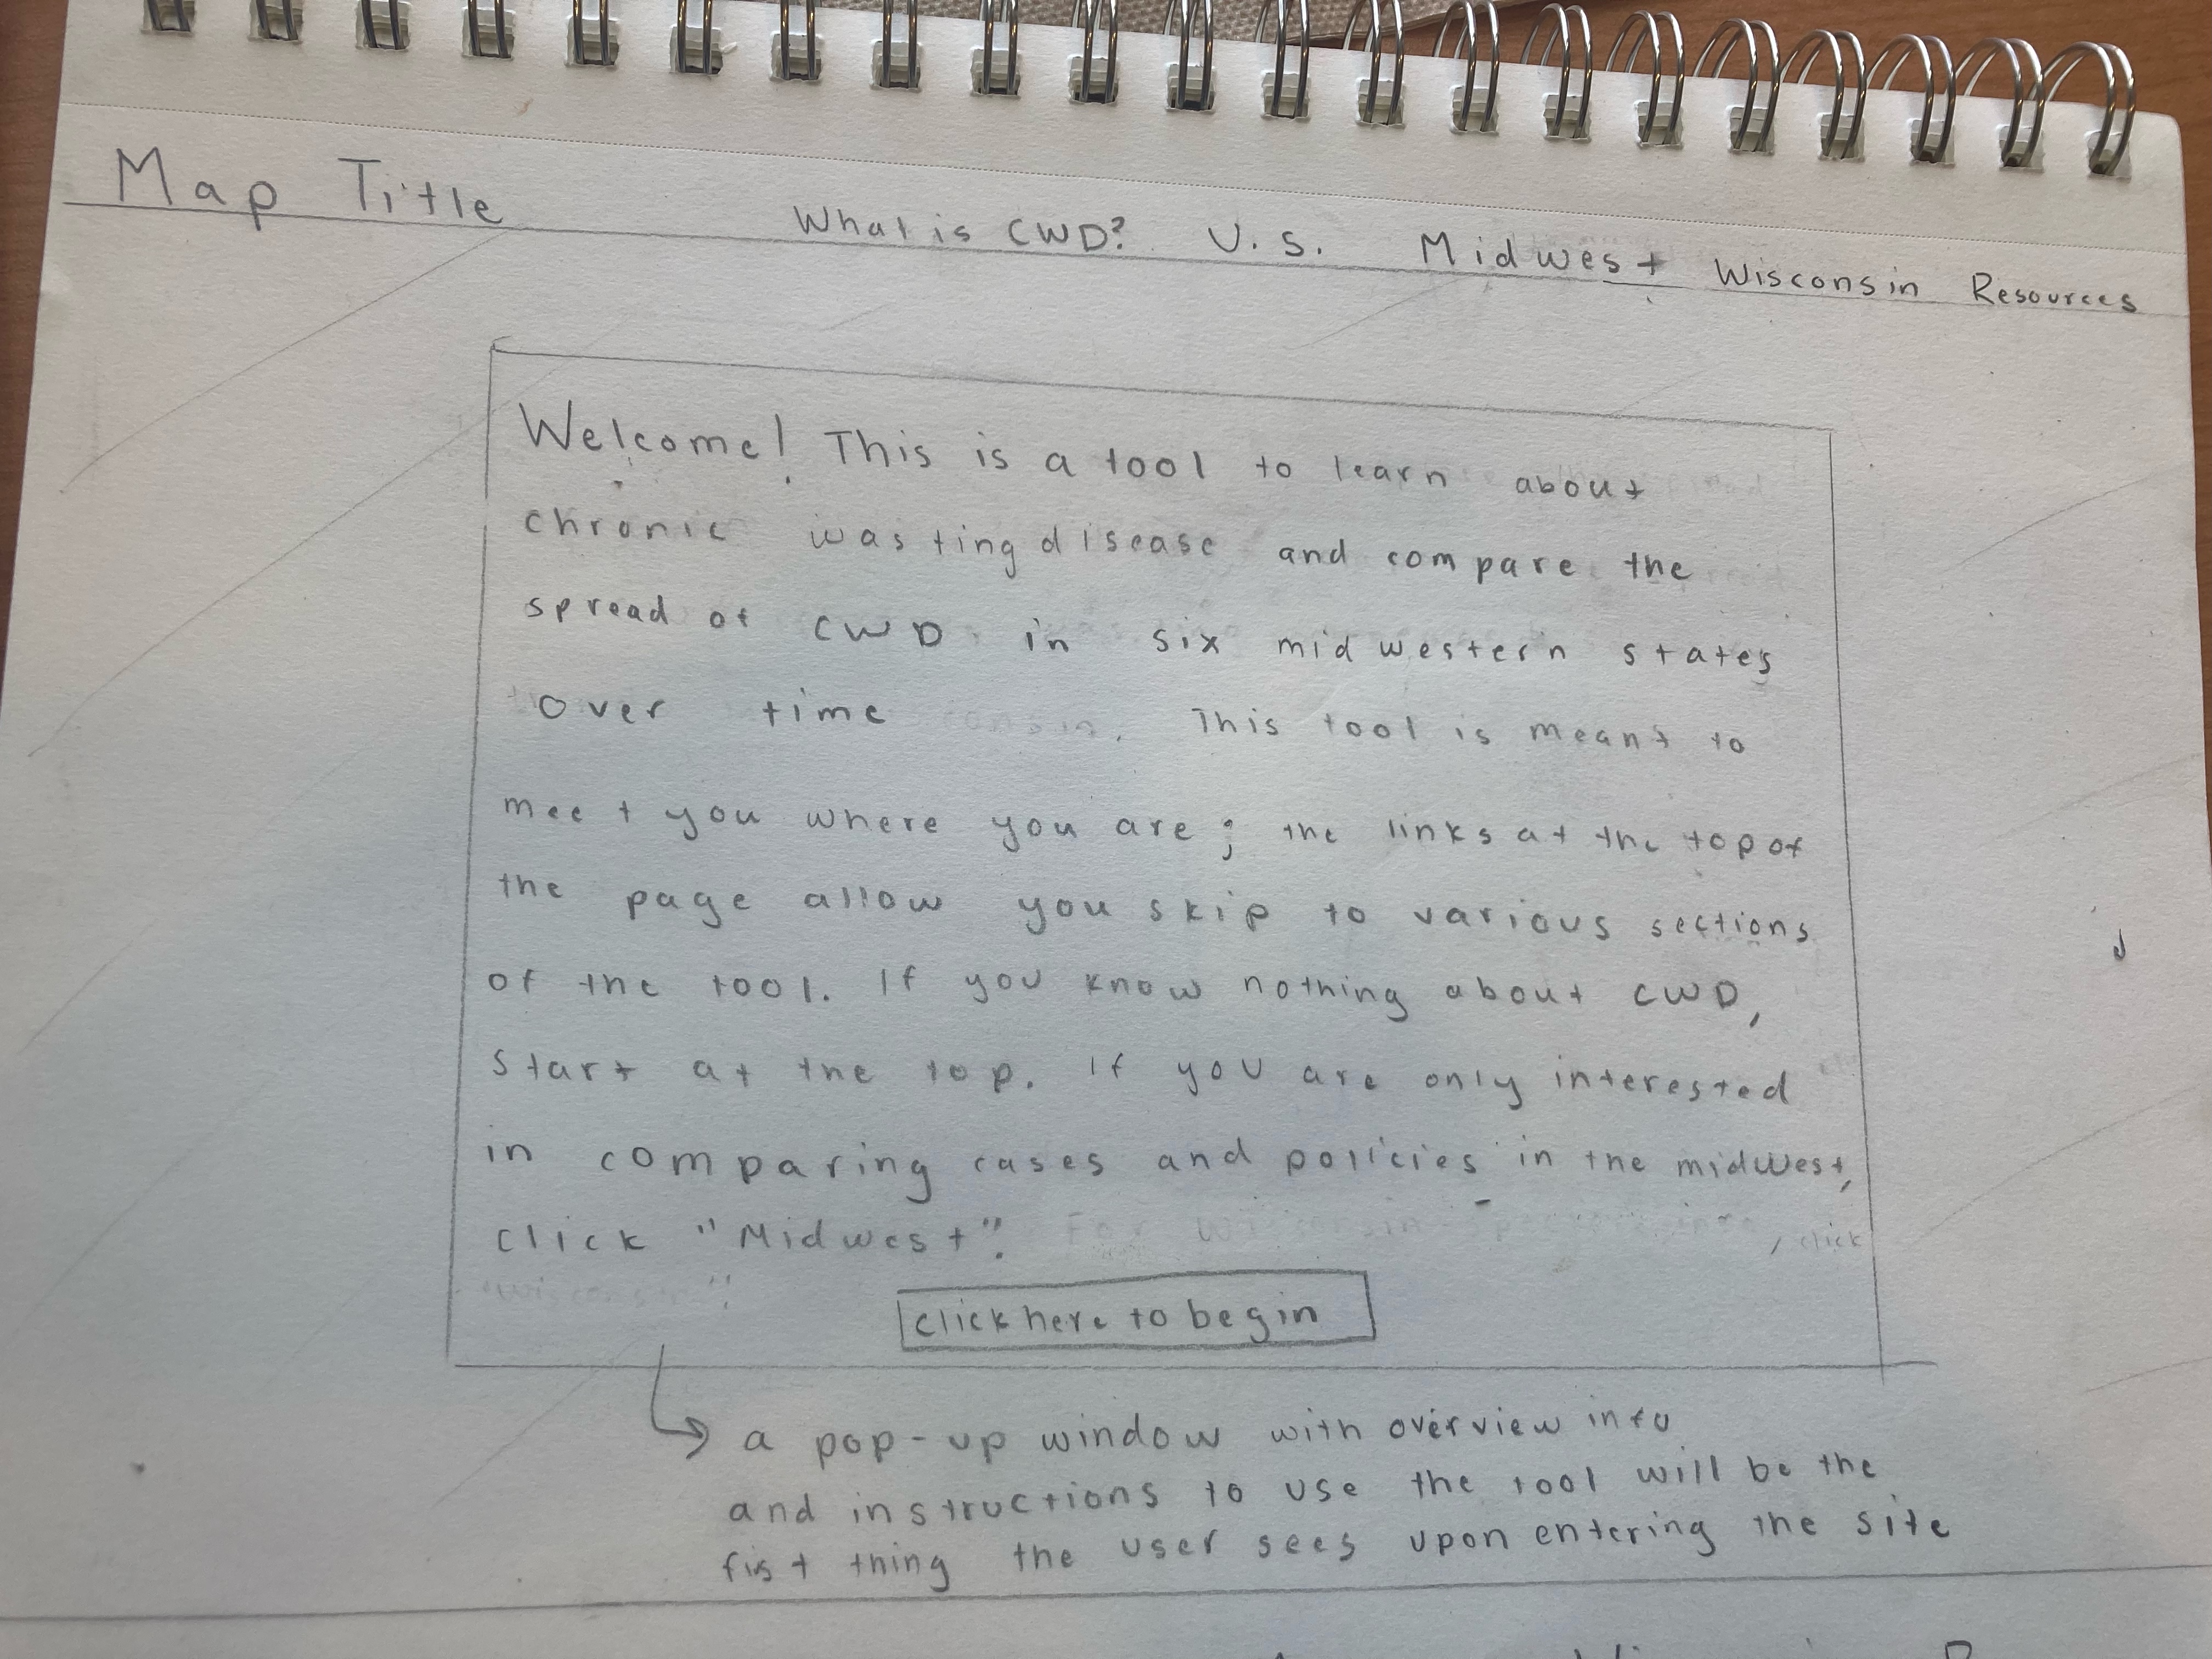 Map Title
What is CWD? U.S. Midwest Wisconsin Resources
Welcome! This is a tool to learn about
chronic wasting disease and compare the
spread of CWD in six midwestern states
over time. This tool is meant to
meet you where you are; the links at the top of
the page allow you skip to various sections
of the tool. If you know nothing about CWD,
start at the top. If you are only interested
in comparing cases and policies in the midwest,
click "Midwest". For Wisconsin , click
click here to begin
a pop-up window with overview info
and instructions to use the tool will be the
fist thing the user sees upon entering the site